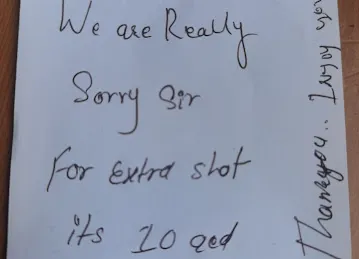 We are Really
Sorry Sir
For Extra shot
its 10 aed
Thankyou.. Enjoy your